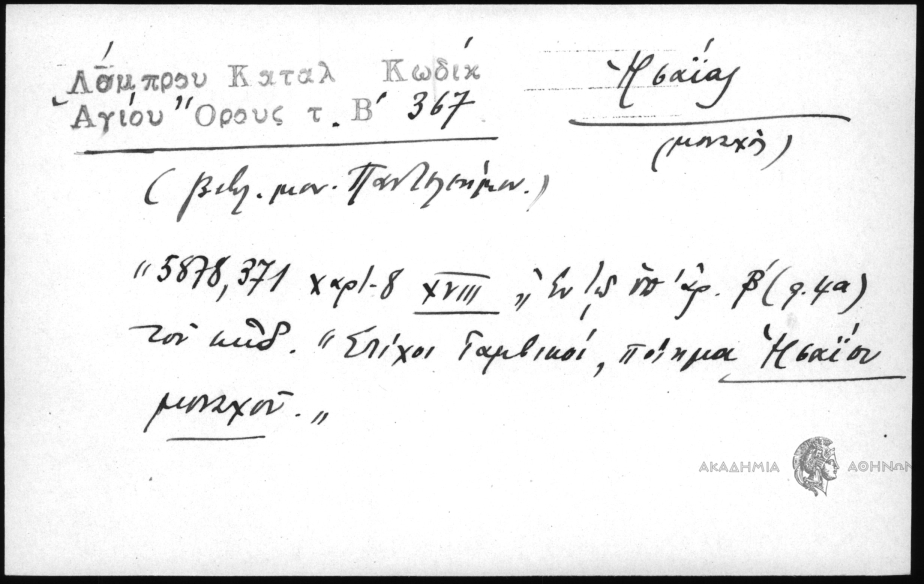 Λάμπρου Καταλ Κωδίκ
Ἁγίου Ὄρους τ. Β΄ 367
Ἡσαΐας
(μοναχὸς)
(βιβλ. μον. Παντελεήμον.)
"5878, 371 χαρτ-8 XVIII " Ἐν τῷ ὑπ' ἀρ. β΄ (φ. 4α)
τοῦ κώδ. "Στίχοι Ἰαμβικοί, ποίημα Ἡσαΐου
μοναχοῦ."
ΑΚΑΔΗΜΙΑ ΑΘΗΝΩΝ